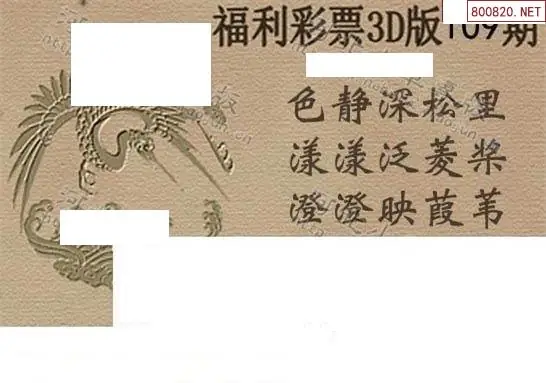 800820.NET
福利彩票3D版109期
色静深松里
漾漾泛菱荇
澄澄映葭苇